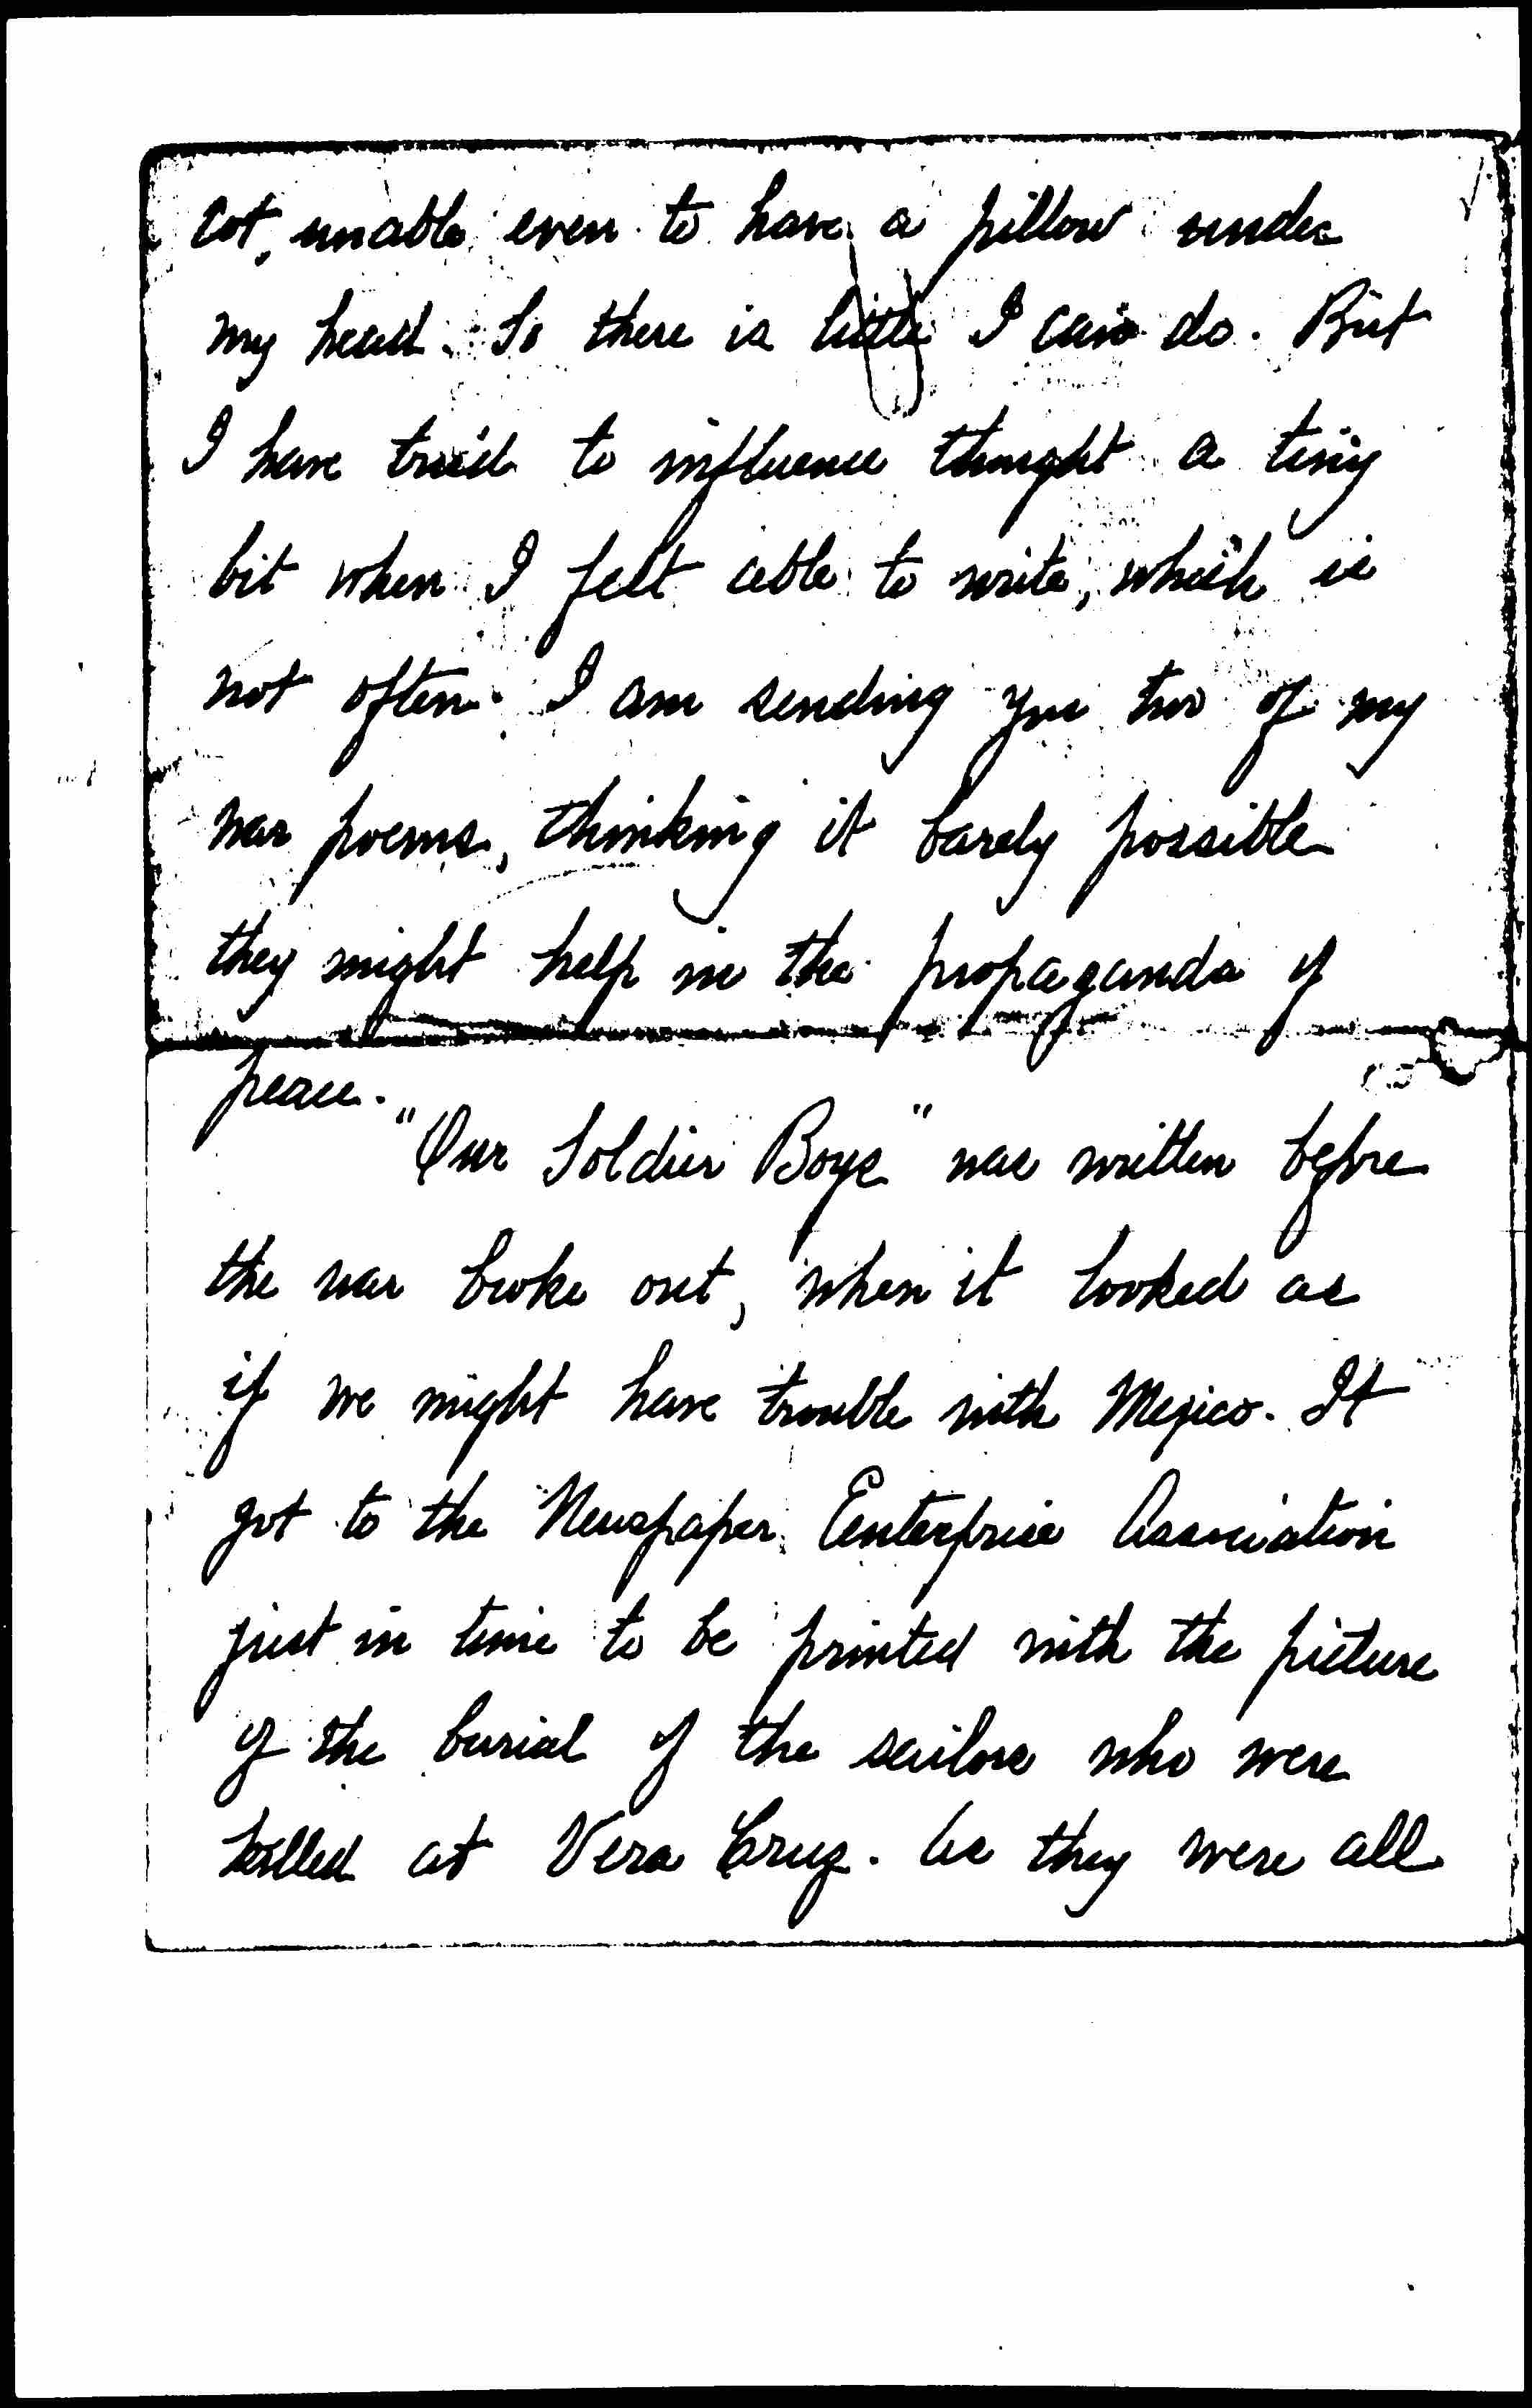 cot, unable even to have a pillow under
my head. So there is little I can do. But
I have tried to influence thought a tiny
bit when I felt able to write, which is
not often. I am sending you two of my
war poems, thinking it barely possible
they might help in the propaganda of
peace.
"Our Soldier Boys" was written before
the war broke out, when it looked as
if we might have trouble with Mexico. It
got to the Newspaper Enterprise Association
just in time to be printed with the picture
of the burial of the sailors who were
killed at Vera Cruz. As they were all